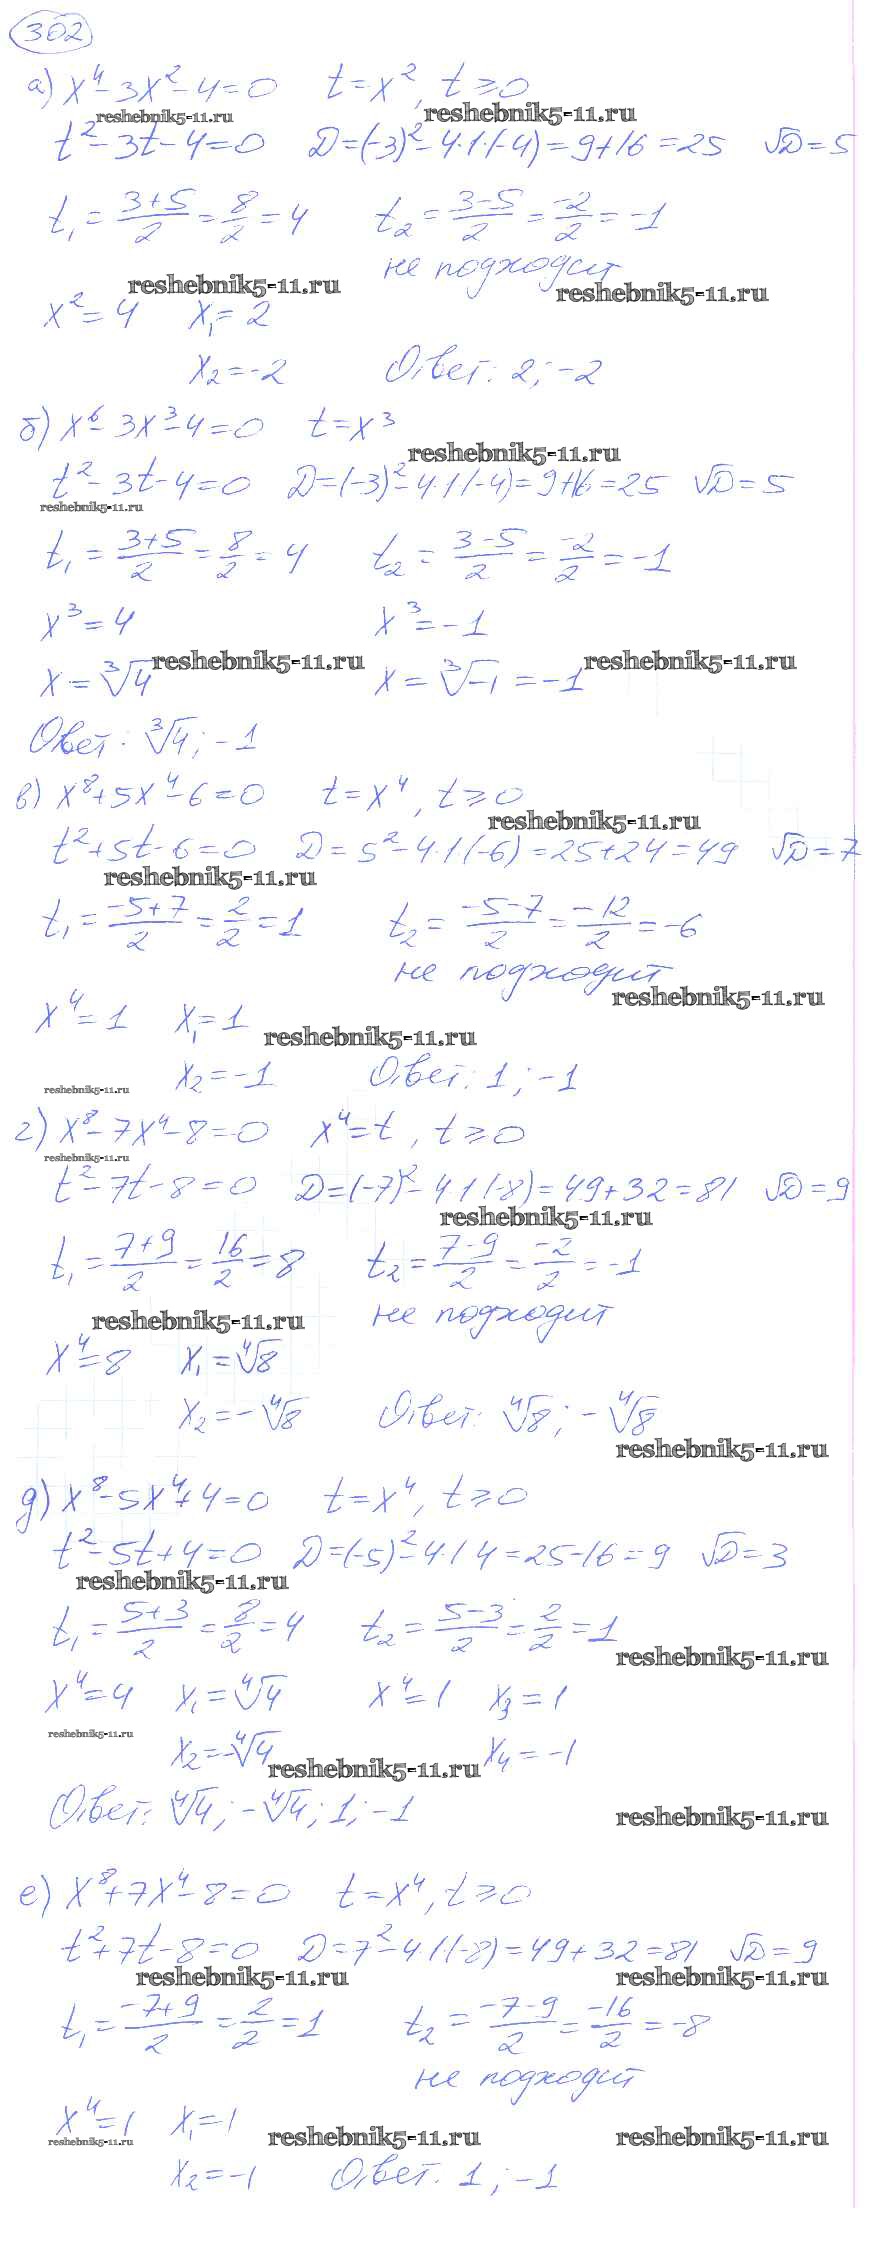 302
а) x⁴-3x²-4=0 t=x², t≥0
reshebnik5-11.ru reshebnik5-11.ru
t²-3t-4=0 D=(-3)²-4·1·(-4)=9+16=25 √D=5
t₁=(3+5)/2=8/2=4 t₂=(3-5)/2=-2/2=-1
не подходит
reshebnik5-11.ru reshebnik5-11.ru
x²=4 x₁=2
x₂=-2 Ответ: 2; -2
б) x⁶-3x³-4=0 t=x³
reshebnik5-11.ru
t²-3t-4=0 D=(-3)²-4·1·(-4)=9+16=25 √D=5
reshebnik5-11.ru
t₁=(3+5)/2=8/2=4 t₂=(3-5)/2=-2/2=-1
x³=4 x³=-1
reshebnik5-11.ru reshebnik5-11.ru
x=∛4 x=∛-1=-1
Ответ: ∛4; -1
в) x⁸+5x⁴-6=0 t=x⁴, t≥0
reshebnik5-11.ru
t²+5t-6=0 D=5²-4·1·(-6)=25+24=49 √D=7
reshebnik5-11.ru
t₁=(-5+7)/2=2/2=1 t₂=(-5-7)/2=-12/2=-6
не подходит
reshebnik5-11.ru
x⁴=1 x₁=1
reshebnik5-11.ru
x₂=-1 Ответ: 1; -1
reshebnik5-11.ru
г) x⁸-7x⁴-8=0 x⁴=t, t≥0
reshebnik5-11.ru
t²-7t-8=0 D=(-7)²-4·1·(-8)=49+32=81 √D=9
reshebnik5-11.ru
t₁=(7+9)/2=16/2=8 t₂=(7-9)/2=-2/2=-1
не подходит
reshebnik5-11.ru
x⁴=8 x₁=∜8
x₂=-∜8 Ответ: ∜8; -∜8
reshebnik5-11.ru
д) x⁸-5x⁴+4=0 t=x⁴, t≥0
t²-5t+4=0 D=(-5)²-4·1·4=25-16=9 √D=3
reshebnik5-11.ru
t₁=(5+3)/2=8/2=4 t₂=(5-3)/2=2/2=1
reshebnik5-11.ru
x⁴=4 x₁=∜4 x⁴=1 x₃=1
reshebnik5-11.ru
x₂=-∜4 x₄=-1
reshebnik5-11.ru
Ответ: ∜4; -∜4; 1; -1
reshebnik5-11.ru
е) x⁸+7x⁴-8=0 t=x⁴, t≥0
t²+7t-8=0 D=7²-4·1·(-8)=49+32=81 √D=9
reshebnik5-11.ru reshebnik5-11.ru
t₁=(-7+9)/2=2/2=1 t₂=(-7-9)/2=-16/2=-8
не подходит
x⁴=1 x₁=1
reshebnik5-11.ru reshebnik5-11.ru reshebnik5-11.ru
x₂=-1 Ответ. 1; -1